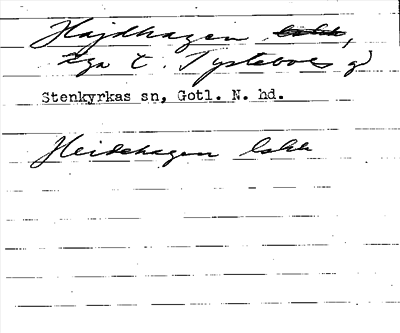 Hajdhagen
äga t. Tystebols gd
Stenkyrkas sn, Gotl. N. hd.
Heidehagen lskh